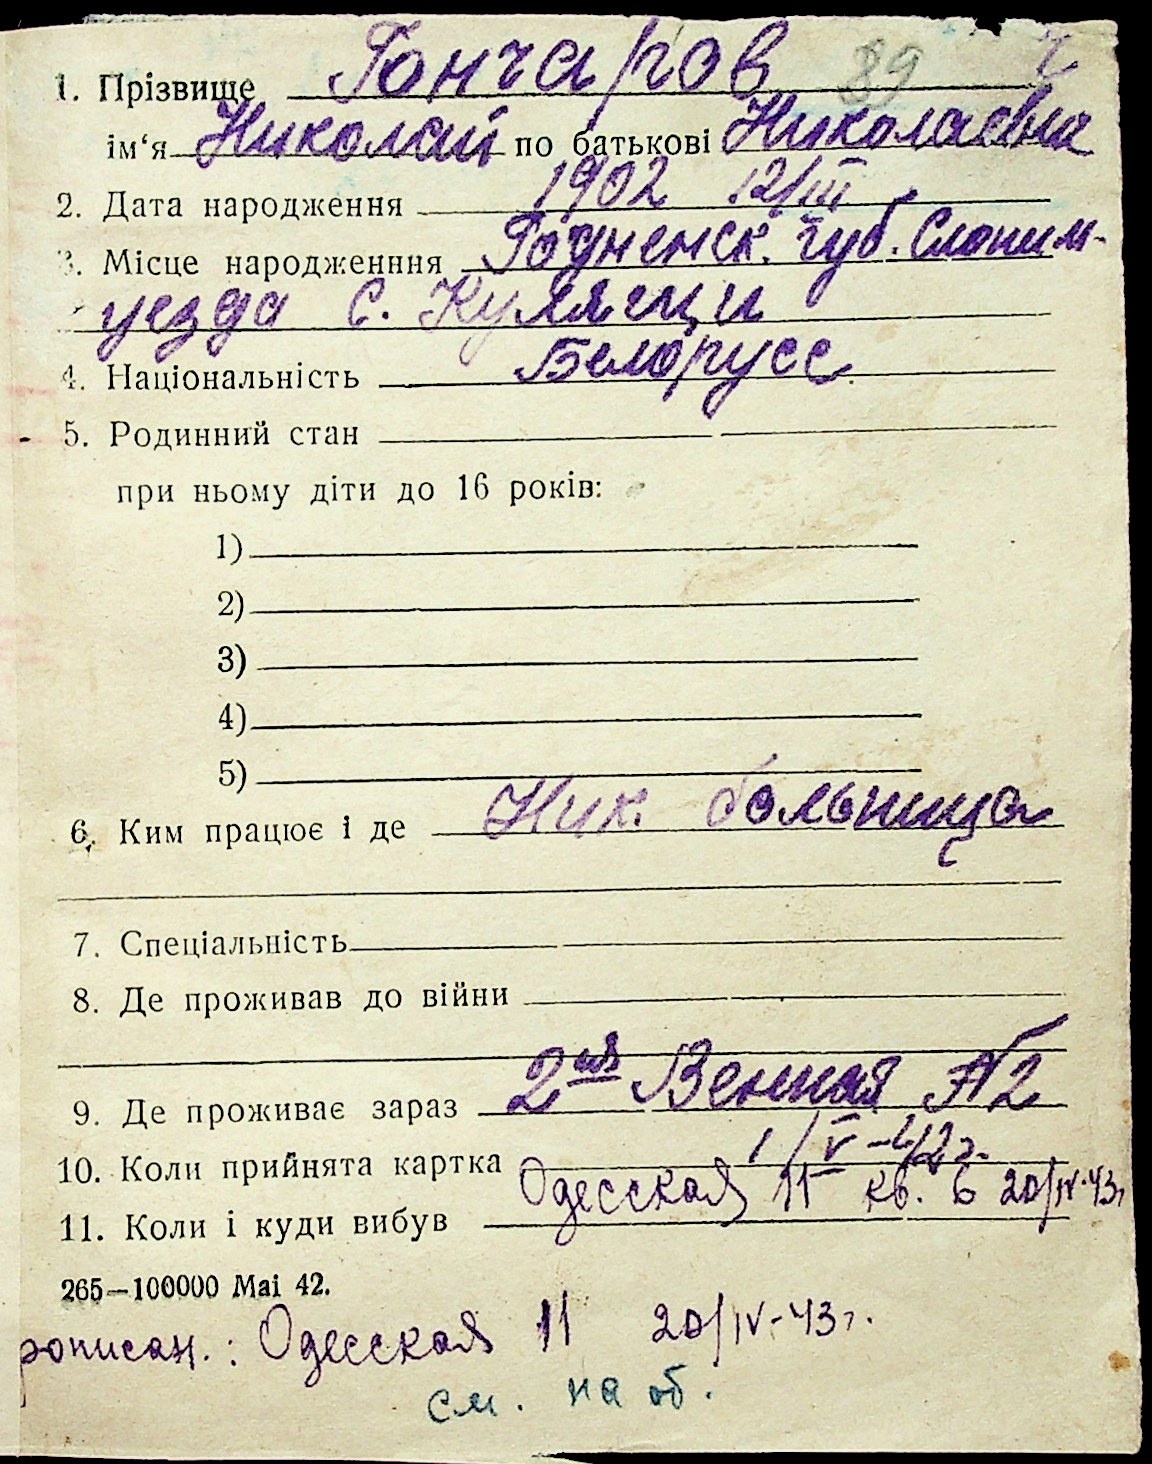 89
1. Прізвище Гончаров
ім‘я Николай по батькові Николаевна
2. Дата народження 1902 12/III
3. Місце народженння Годненск. губ. Слоним-
уезда с. Куляпци
4. Національність Белорусс
5. Родинний стан
при ньому діти до 16 років:
1)
2)
3)
4)
5)
6. Ким працює і де Ник. больница
7. Спеціальність
8. Де проживав до війни
9. Де проживає зараз 2ая Венная №2
10. Коли прийнята картка 1/V-42г.
Одесская 11 кв. 6 20/IV-43г
11. Коли і куди вибув
265—100000 Mai 42.
рописан.: Одесская 11 20/IV-43г.
см. на об.